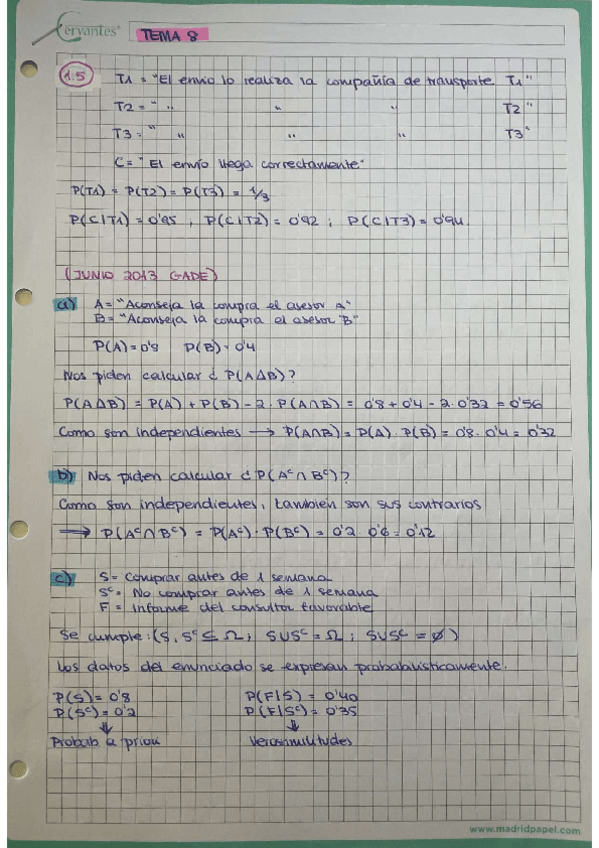 Cervantes®
TEMA 8
1.5 T1 = "El envío lo realiza la compañía de transporte T1"
T2 = " " " " T2"
T3 = " " " " T3"
C = "El envío llega correctamente"
P(T1) = P(T2) = P(T3) = 1/3
P(C|T1) = 0'95, P(C|T2) = 0'92; P(C|T3) = 0'94.
(JUNIO 2013 GADE)
a) A = "Aconseja la compra el asesor A"
B = "Aconseja la compra el asesor B"
P(A) = 0'8 P(B) = 0'4
Nos piden calcular ¿P(A∆B)?
P(A∆B) = P(A) + P(B) - 2·P(A∩B) = 0'8 + 0'4 - 2·0'32 = 0'56
Como son independientes → P(A∩B) = P(A)·P(B) = 0'8·0'4 = 0'32
b) Nos piden calcular ¿P(Aᶜ∩Bᶜ)?
Como son independientes, también son sus contrarios
⟹ P(Aᶜ∩Bᶜ) = P(Aᶜ)·P(Bᶜ) = 0'2·0'6 = 0'12
c) S = Comprar antes de 1 semana
Sᶜ = No comprar antes de 1 semana
F = Informe del consultor favorable
Se cumple: (S, Sᶜ ⊆ Ω; S∪Sᶜ = Ω; S∪Sᶜ = ∅)
Los datos del enunciado se expresan probabilísticamente.
P(S) = 0'8 P(F|S) = 0'40
P(Sᶜ) = 0'2 P(F|Sᶜ) = 0'35
⇓ ⇓
Probab a priori Verosimilitudes
www.madridpapel.com